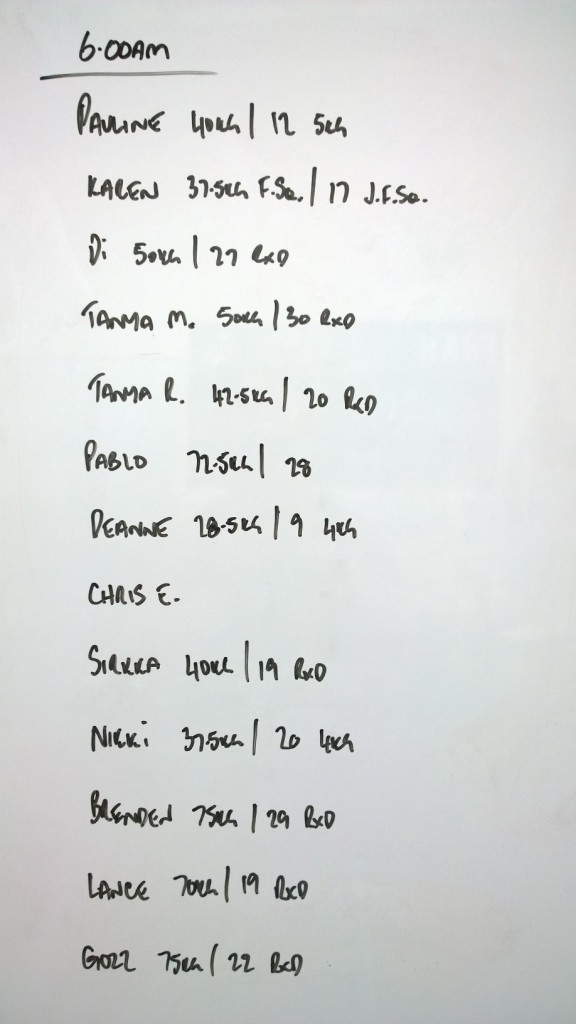 6.00AM
PAULINE 40KG | 12 5KG
KAREN 37.5KG F.SQ. | 17 J.F.SQ.
Di 50KG | 27 RXD
TANYA M. 50KG | 30 RXD
TANYA R. 42.5KG | 20 RXD
PABLO 72.5KG | 28
DEANNE 28.5KG | 9 4KG
CHRIS E.
SIRKKA 40KG | 19 RXD
NIKKi 37.5KG | 20 4KG
BRENDEN 75KG | 29 RXD
LANCE 70KG | 19 RXD
GOZZ 75KG | 22 RXD